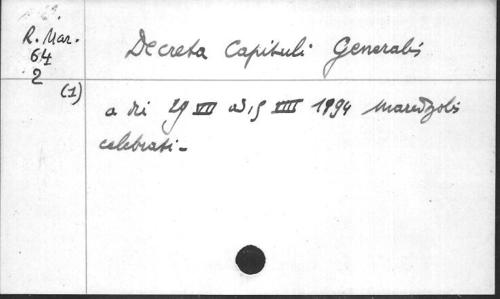 R. Mar.
64
2
(1)
Decreta Capituli Generalis
a di 29 VII ad 15 VIII 1894 Maredzolis
celebrati -